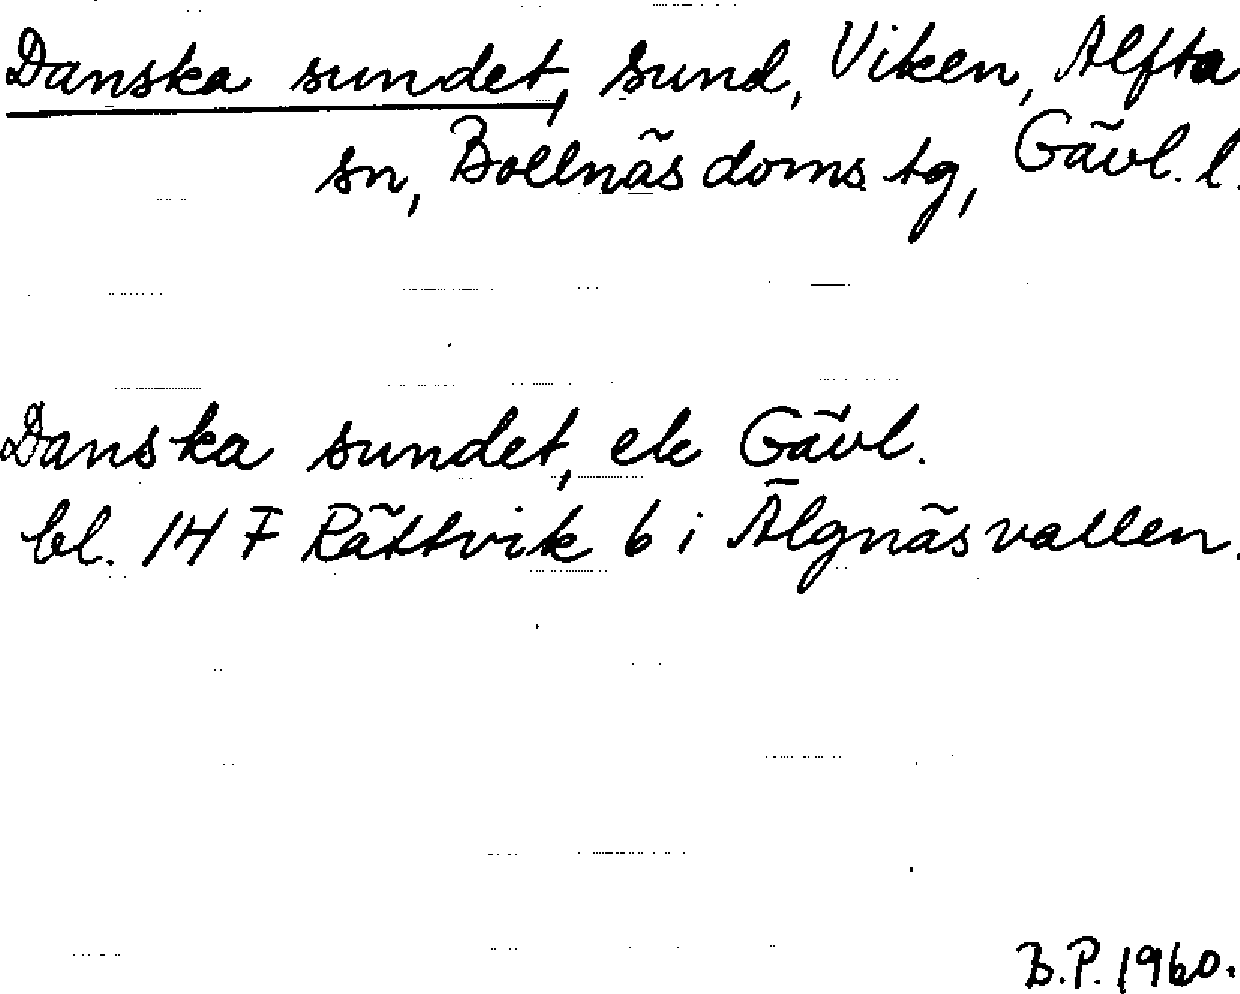 Danska sundet, sund, Viken, Alfta
sn, Bollnäs doms. tg, Gävl. l.
Danska sundet, ek Gävl.
bl. 14 F Rättvik 6 i Älgnäsvallen.
B.P. 1960.